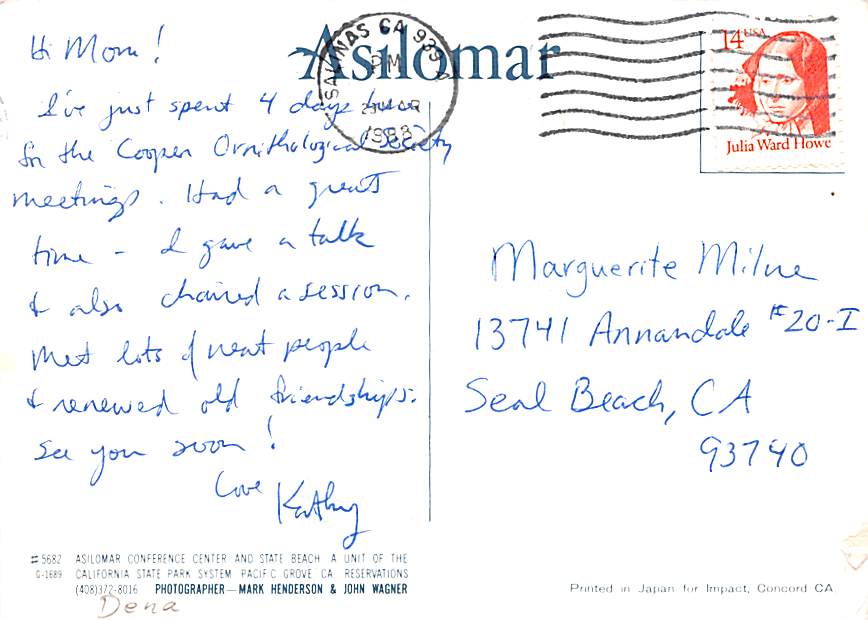 Asilomar
SALINAS CA 939
PM
MAR
1988
14 USA
Julia Ward Howe
Hi Mom!
I've just spent 4 days here
for the Cooper Ornithological Society
meetings. Had a great
time - I gave a talk
& also chaired a session.
Met lots of neat people
& renewed old friendships.
See you soon!
Love
Kathy
Marguerite Milne
13741 Annandale #20-I
Seal Beach, CA
93740
#5682 ASILOMAR CONFERENCE CENTER AND STATE BEACH A UNIT OF THE
G-1689 CALIFORNIA STATE PARK SYSTEM PACIFIC GROVE CA RESERVATIONS
(408)372-8016 PHOTOGRAPHER—MARK HENDERSON & JOHN WAGNER
Dena
Printed in Japan for Impact, Concord CA